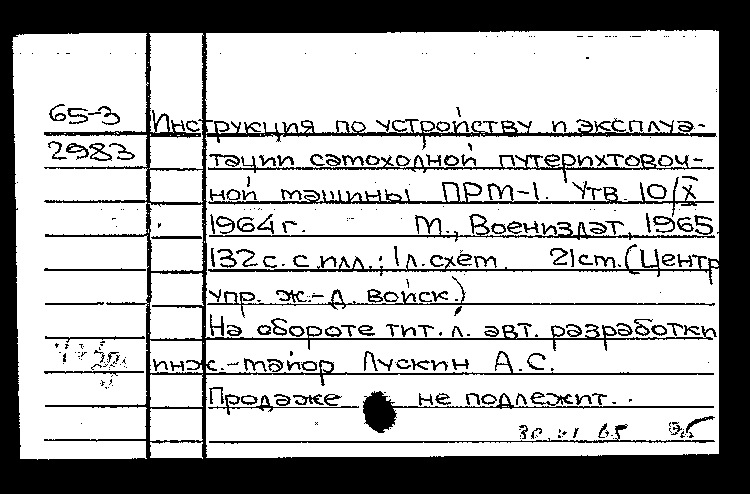 65-3 Инструкция по устройству и эксплуа-
2983 тации самоходной путерихтовоч-
ной машины ПРМ-1. Утв. 10/X
1964 г. М., Воениздат, 1965.
132 с. с илл.; 1 л. схем. 21 см. (Центр
упр. ж.-д. войск.)
На обороте тит. л. авт. разработки
инж.-майор Лускин А.С.
Продаже не подлежит.
65